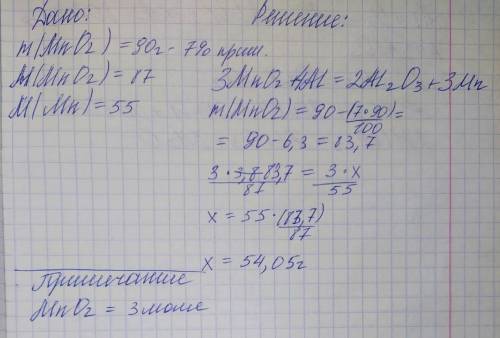 Дано:
m(MnO2) = 90г - 7% прим.
M(MnO2) = 87
M(Mn) = 55
Примечание
MnO2 = 3 моль
Решение:
3MnO2 + 4Al = 2Al2O3 + 3Mn
m(MnO2) = 90 - (7*90)/100 =
= 90 - 6,3 = 83,7
3 · 83,7/87 = 3 · x/55
x = 55 · (83,7)/87
x = 54,05г